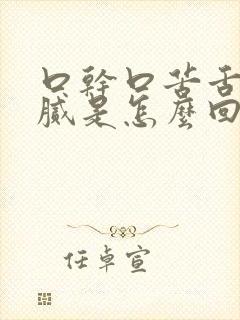 口幹口苦舌
膩是怎麼回
任卓宣